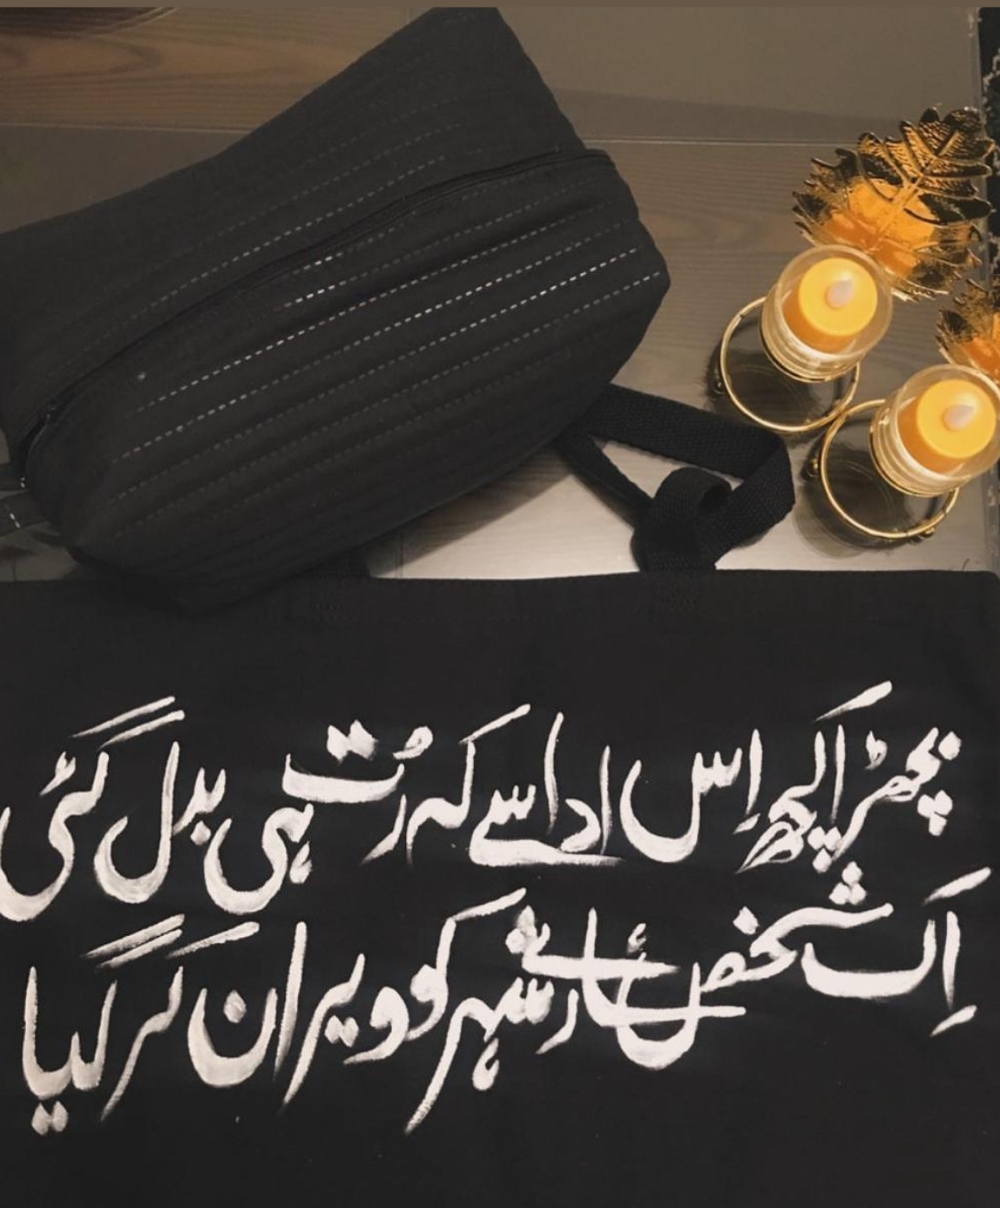 بچھڑا کچھ اِس ادا سے کہ رُت ہی بدل گئی
اِک شخص سارے شہر کو ویران کر گیا